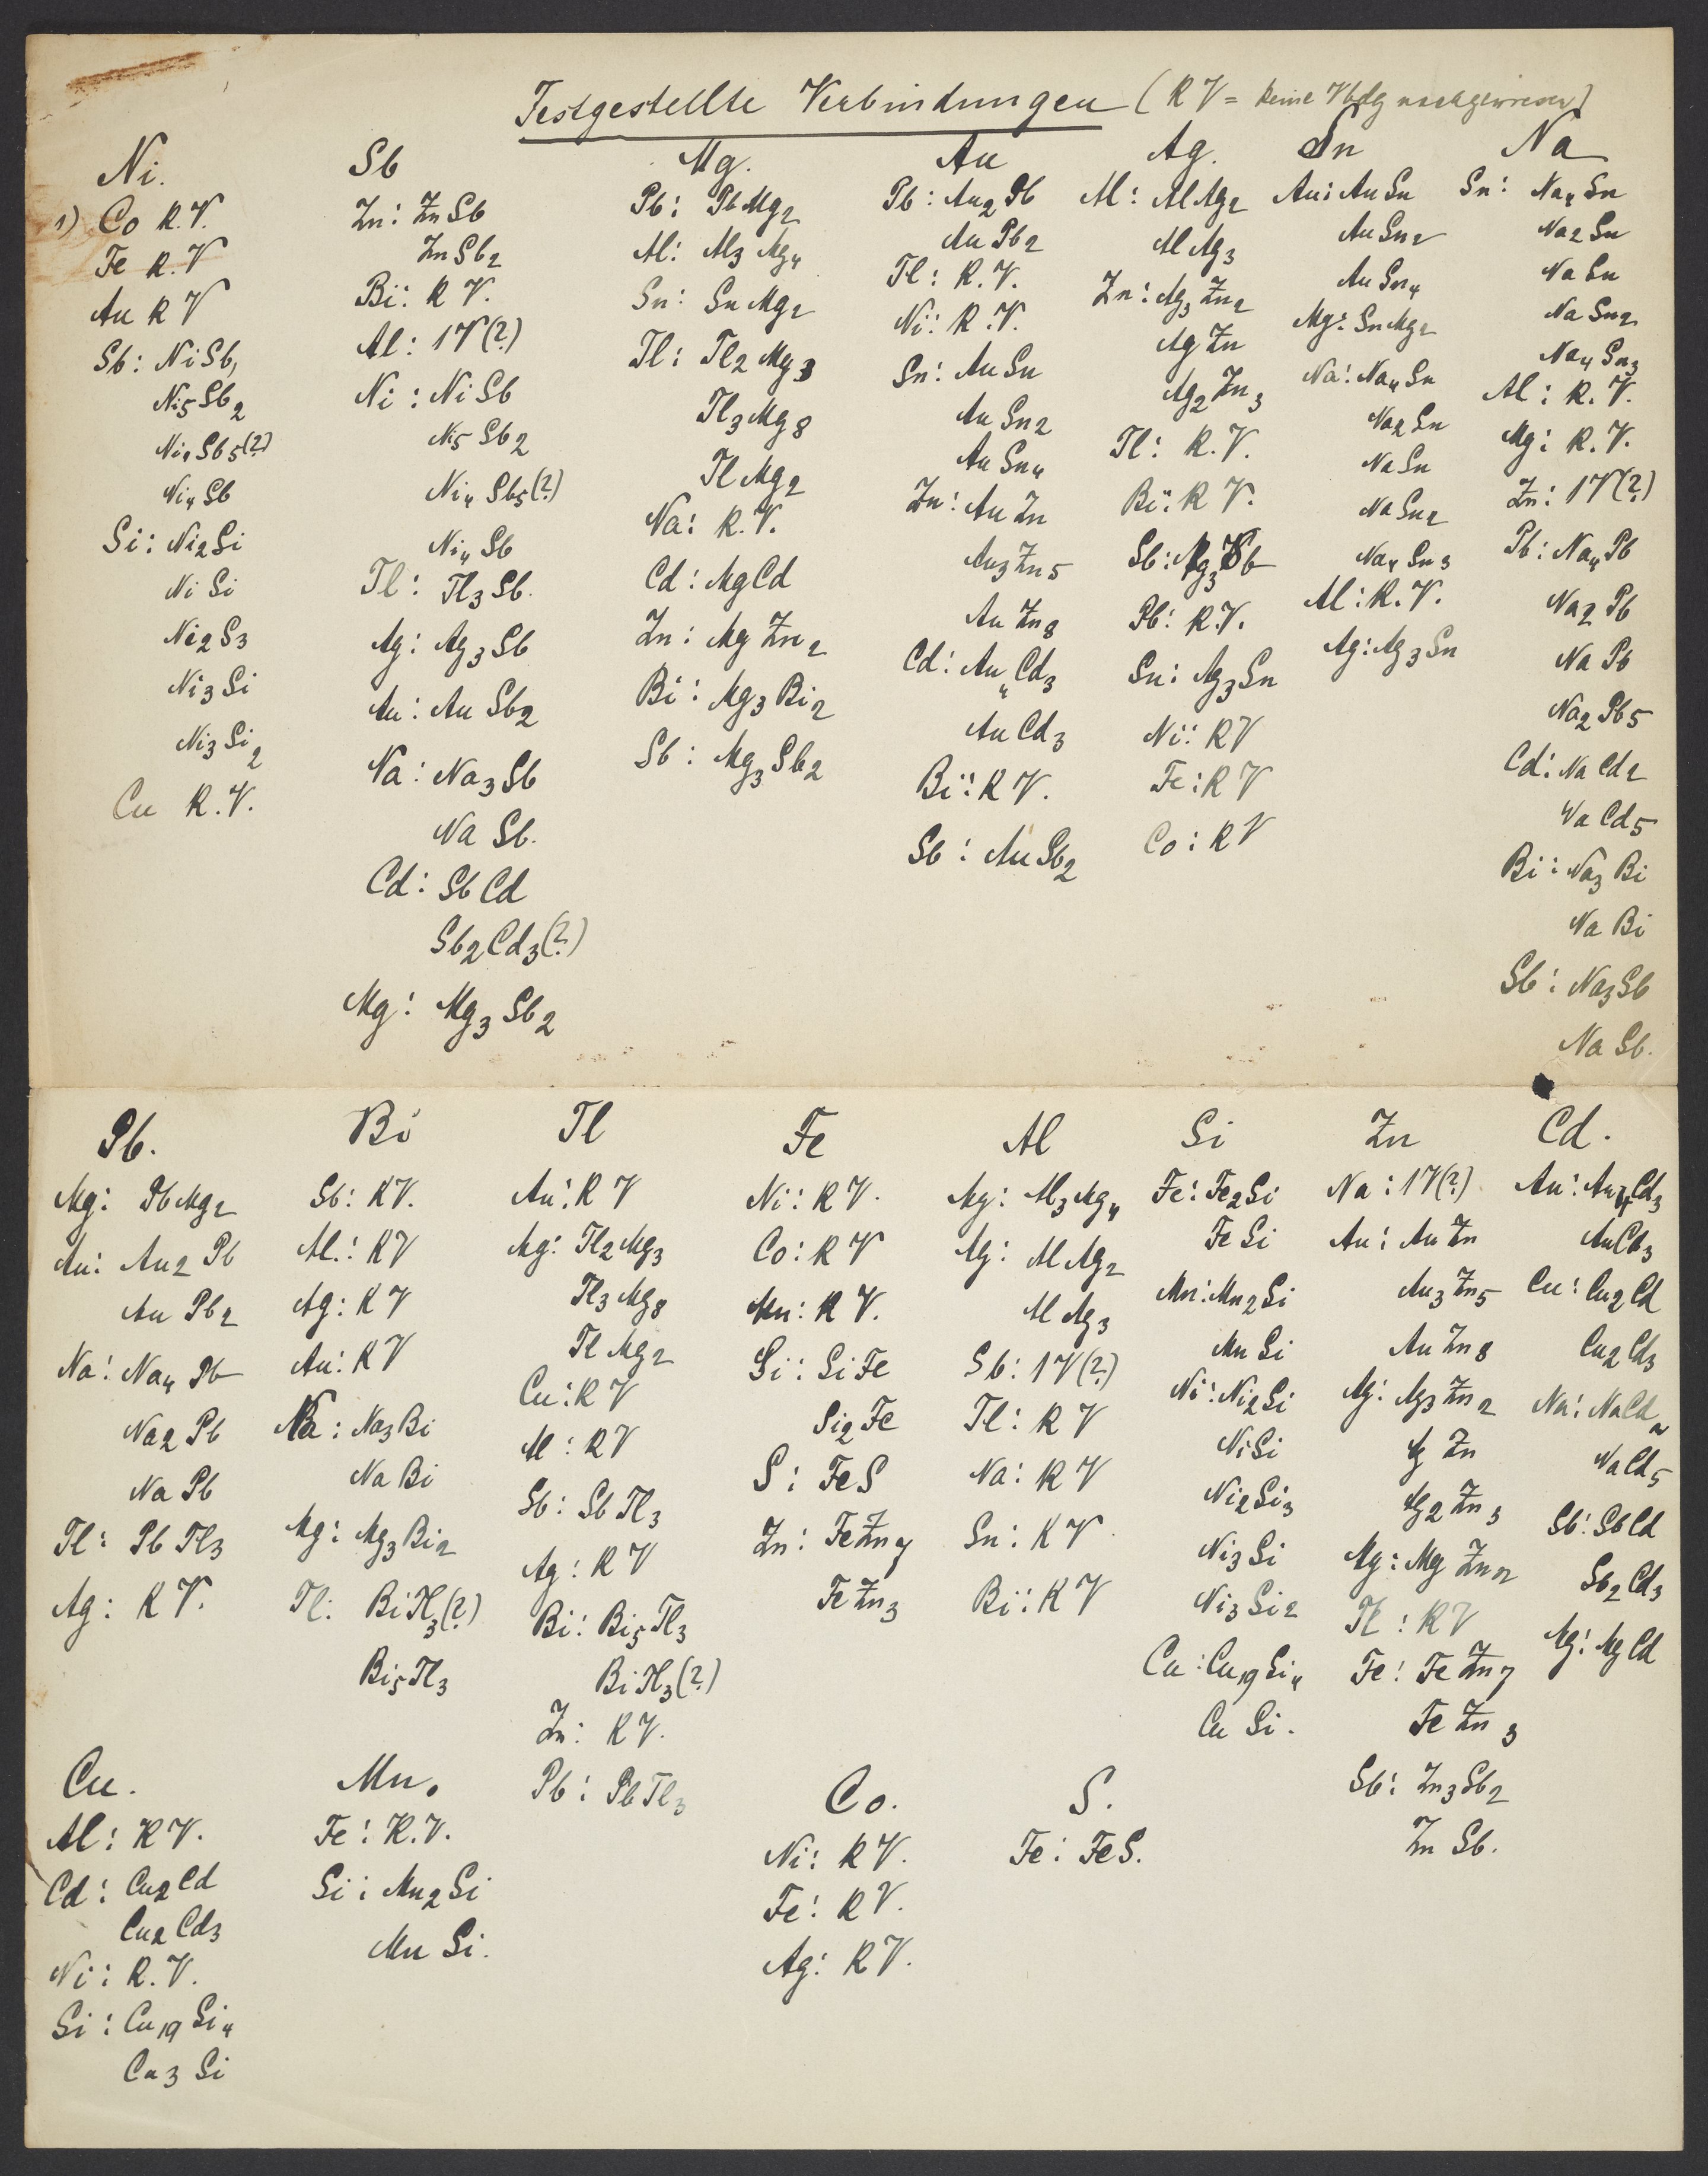 Festgestellte Verbindungen (KV = keine Vbdg nachgewiesen)
Ni.
1) Co K.V.
Fe K.V
Au K V
Sb: NiSb,
Ni5Sb2
Ni4Sb5(?)
Ni4Sb
Si: Ni2Si
NiSi
Ni2S3
Ni3Si
Ni3Si2
Cu K.V.
Sb
Zn: ZnSb
ZnSb2
Bi: K V.
Al: 1V(?)
Ni: NiSb
Ni5Sb2
Ni4Sb5(?)
Ni4Sb
Tl: Tl3Sb.
Ag: Ag3Sb
Au: AuSb2
Na: Na3Sb
NaSb.
Cd: SbCd
Sb2Cd3(?)
Mg: Mg3Sb2
Mg.
Pb: PbMg2
Al: Al3Mg4
Sn: SnMg2
Tl: Tl2Mg3
Tl3Mg8
TlMg2
Na: K.V.
Cd: MgCd
Zn: MgZn2
Bi: Mg3Bi2
Sb: Mg3Sb2
Au
Pb: Au2Pb
AuPb2
Tl: K.V.
Ni: K.V.
Sn: AuSn
AuSn2
AuSn4
Zn: AuZn
Au3Zn5
AuZn8
Cd: Au4Cd3
AuCd3
Bi: K V.
Sb: AuSb2
Ag.
Al: AlAg2
AlAg3
Zn: Ag3Zn2
AgZn
Ag2Zn3
Tl: K.V.
Bi: K V.
Sb: Ag3Sb
Pb: K.V.
Sn: Ag3Sn
Ni: KV
Fe: KV
Co: KV
Sn
Au: AuSn
AuSn2
AuSn4
Mg: SnMg2
Na: Na4Sn
Na2Sn
NaSn
NaSn2
Na4Sn3
Al: K.V.
Ag: Ag3Sn
Na
Sn: Na4Sn
Na2Sn
NaSn
NaSn2
Na4Sn3
Al: K.V.
Mg: K.V.
Zn: 1V(?)
Pb: Na4Pb
Na2Pb
NaPb
Na2Pb5
Cd: NaCd2
NaCd5
Bi: Na3Bi
NaBi
Sb: Na3Sb
NaSb.
Pb.
Mg: PbMg2
Au: Au2Pb
AuPb2
Na: Na4Pb
Na2Pb
NaPb
Tl: PbTl3
Ag: K V.
Bi
Sb: KV.
Al.: KV
Ag: KV
Au: KV
Na: Na3Bi
NaBi
Mg: Mg3Bi2
Tl: BiTl3(?)
Bi5Tl3
Tl
Au: K V
Mg: Tl2Mg3
Tl3Mg8
TlMg2
Cu: K V
Al: KV
Sb: SbTl3
Ag: K V
Bi: Bi5Tl3
BiTl3(?)
Zn: KV.
Pb: PbTl3
Fe
Ni: K V.
Co: K V
Mn: K V.
Si: SiFe
Si2Fe
S: FeS
Zn: FeZn7
FeZn3
Al
Mg: Al3Mg4
Ag: AlAg2
AlAg3
Sb: 1V(?)
Tl: K V
Na: K V
Sn: K V
Bi: K V
Si
Fe: Fe2Si
FeSi
Mn: Mn2Si
MnSi
Ni: Ni2Si
NiSi
Ni2Si3
Ni3Si
Ni3Si2
Cu: Cu19Si4
CuSi.
Zn
Na: 1V(?)
Au: AuZn
Au3Zn5
AuZn8
Ag: Ag3Zn2
AgZn
Ag2Zn3
Mg: MgZn2
Tl: KV
Fe: FeZn7
FeZn3
Sb: Zn3Sb2
ZnSb.
Cd.
Au: Au4Cd3
AuCd3
Cu: Cu2Cd
Cu2Cd3
Na: NaCd2
NaCd5
Sb: SbCd
Sb2Cd3
Mg: MgCd
Cu.
Al: KV.
Cd: Cu2Cd
Cu2Cd3
Ni: K.V.
Si: Cu19Si4
Cu3Si
Mn.
Fe: K.V.
Si: Mn2Si
MnSi.
Co.
Ni: KV.
Fe: KV.
Ag: KV.
S.
Fe: FeS.